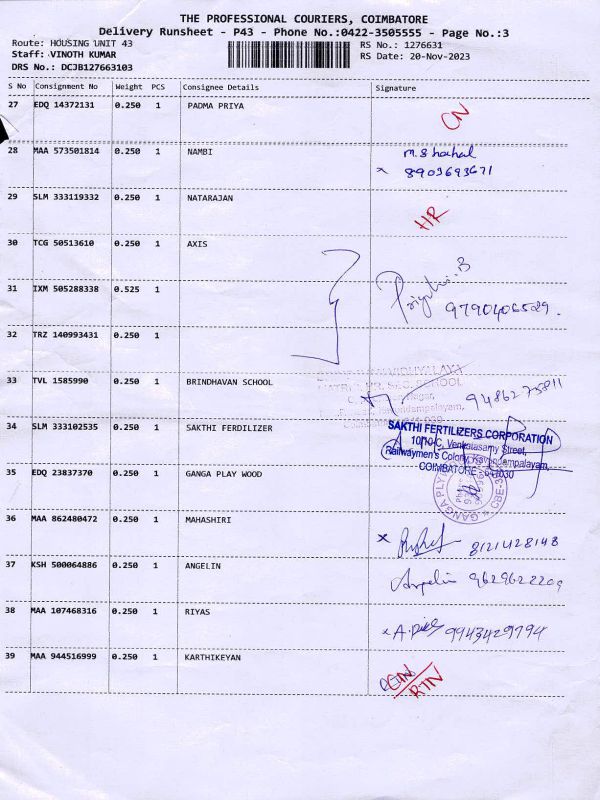 THE PROFESSIONAL COURIERS, COIMBATORE
Delivery Runsheet - P43 - Phone No.:0422-3505555 - Page No.:3
Route: HOUSING UNIT 43
RS No.: 1276631
Staff: VINOTH KUMAR
RS Date: 20-Nov-2023
DRS No.: DCJB127663103
S No Consignment No Weight PCS Consignee Details Signature
27 EDQ 14372131 0.250 1 PADMA PRIYA CN
28 MAA 573501814 0.250 1 NAMBI
x 8903693671
29 SLM 333119332 0.250 1 NATARAJAN HR
30 TCG 50513610 0.250 1 AXIS
31 IXM 505288338 0.525 1
9790406529.
32 TRZ 140993431 0.250 1
33 TVL 1585990 0.250 1 BRINDHAVAN SCHOOL
34 SLM 333102535 0.250 1 SAKTHI FERDILIZER
SAKTHI FERTILIZERS CORPORATION
10/10-C, Venkatasamy Street,
Railwaymen's Colony, Kavundampalayam,
COIMBATORE - 641030
35 EDQ 23837370 0.250 1 GANGA PLAY WOOD
36 MAA 862480472 0.250 1 MAHASHIRI
x 8121428148
37 KSH 500064886 0.250 1 ANGELIN Angelin 9629622209
38 MAA 107468316 0.250 1 RIYAS x 9943429794
39 MAA 944516999 0.250 1 KARTHIKEYAN CN
RTN